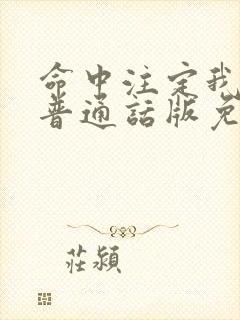 命中注定我
普通話版免
莊潁